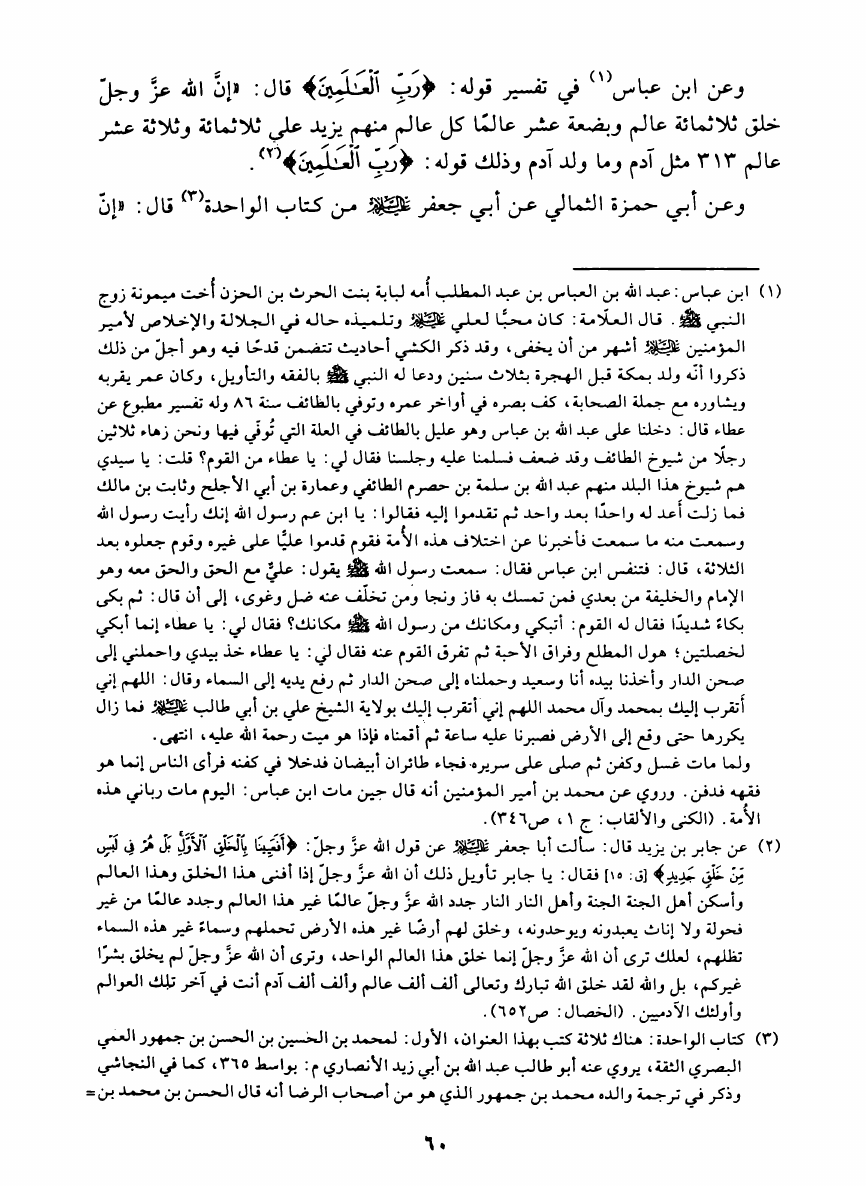 وعن ابن عباس(١) في تفسير قوله: ﴿رَبِّ ٱلْعَـٰلَمِينَ﴾ قال: «إنَّ الله عزَّ وجلّ
خلق ثلاثمائة عالم وبضعة عشر عالمًا كل عالم منهم يزيد على ثلاثمائة وثلاثة عشر
عالم ٣١٣ مثل آدم وما ولد آدم وذلك قوله: ﴿رَبِّ ٱلْعَـٰلَمِينَ﴾(٢).
وعن أبي حمزة الثمالي عن أبي جعفر عليه السلام من كتاب الواحدة(٣) قال: «إنّ
(١) ابن عباس: عبد الله بن العباس بن عبد المطلب أُمه لبابة بنت الحرث بن الحزن أُخت ميمونة زوج
النبي ﷺ. قال العلّامة: كان محبًّا لعلي عليه السلام وتلميذه حاله في الجلالة والإخلاص لأمير
المؤمنين عليه السلام أشهر من أن يخفى، وقد ذكر الكشي أحاديث تتضمن قدحًا فيه وهو أجلّ من ذلك
ذكروا أنّه ولد بمكة قبل الهجرة بثلاث سنين ودعا له النبي ﷺ بالفقه والتأويل، وكان عمر يقربه
ويشاوره مع جملة الصحابة، كف بصره في أواخر عمره وتوفي بالطائف سنة ٨٦ وله تفسير مطبوع عن
عطاء قال: دخلنا على عبد الله بن عباس وهو عليل بالطائف في العلة التي تُوفّي فيها ونحن زهاء ثلاثين
رجلًا من شيوخ الطائف وقد ضعف فسلمنا عليه وجلسنا فقال لي: يا عطاء من القوم؟ قلت: يا سيدي
هم شيوخ هذا البلد منهم عبد الله بن سلمة بن حصرم الطائفي وعمارة بن أبي الأجلح وثابت بن مالك
فما زلت أعد له واحدًا بعد واحد ثم تقدموا إليه فقالوا: يا ابن عم رسول الله إنك رأيت رسول الله
وسمعت منه ما سمعت فأخبرنا عن اختلاف هذه الأُمة فقوم قدموا عليًّا على غيره وقوم جعلوه بعد
الثلاثة، قال: فتنفس ابن عباس فقال: سمعت رسول الله ﷺ يقول: عليٌّ مع الحق والحق معه وهو
الإمام والخليفة من بعدي فمن تمسك به فاز ونجا ومن تخلّف عنه ضل وغوى، إلى أن قال: ثم بكى
بكاءً شديدًا فقال له القوم: أتبكي ومكانك من رسول الله ﷺ مكانك؟ فقال لي: يا عطاء إنما أبكي
لخصلتين؛ هول المطلع وفراق الأحبة ثم تفرق القوم عنه فقال لي: يا عطاء خذ بيدي واحملني إلى
صحن الدار وأخذنا بيده أنا وسعيد وحملناه إلى صحن الدار ثم رفع يديه إلى السماء وقال: اللهم إني
أتقرب إليك بمحمد وآل محمد اللهم إني أتقرب إليك بولاية الشيخ علي بن أبي طالب عليه السلام فما زال
يكررها حتى وقع إلى الأرض فصبرنا عليه ساعة ثم أقمناه فإذا هو ميت رحمة الله عليه، انتهى.
ولما مات غسل وكفن ثم صلى على سريره فجاء طائران أبيضان فدخلا في كفنه فرأى الناس إنما هو
فقهه فدفن. وروي عن محمد بن أمير المؤمنين أنه قال حين مات ابن عباس: اليوم مات رباني هذه
الأُمة. (الكنى والألقاب: ج ١، ص٣٤٦).
(٢) عن جابر بن يزيد قال: سألت أبا جعفر عليه السلام عن قول الله عزَّ وجلّ: ﴿أَفَعَيِينَا بِٱلْخَلْقِ ٱلْأَوَّلِ بَلْ هُمْ فِى لَبْسٍ
مِّنْ خَلْقٍ جَدِيدٍ﴾ [ق: ١٥] فقال: يا جابر تأويل ذلك أن الله عزَّ وجلّ إذا أفنى هذا الخلق وهذا العالم
وأسكن أهل الجنة الجنة وأهل النار النار جدد الله عزَّ وجلّ عالمًا غير هذا العالم وجدد عالمًا من غير
فحولة ولا إناث يعبدونه ويوحدونه، وخلق لهم أرضًا غير هذه الأرض تحملهم وسماءً غير هذه السماء
تظلهم، لعلك ترى أن الله عزَّ وجلّ إنما خلق هذا العالم الواحد، وترى أن الله عزَّ وجلّ لم يخلق بشرًا
غيركم، بل والله لقد خلق الله تبارك وتعالى ألف ألف عالم وألف ألف آدم أنت في آخر تلك العوالم
وأولئك الآدميين. (الخصال: ص٦٥٢).
(٣) كتاب الواحدة: هناك ثلاثة كتب بهذا العنوان، الأول: لمحمد بن الحسين بن الحسن بن جمهور العمي
البصري الثقة، يروي عنه أبو طالب عبد الله بن أبي زيد الأنصاري م: بواسط ٣٦٥، كما في النجاشي
وذكر في ترجمة والده محمد بن جمهور الذي هو من أصحاب الرضا أنه قال الحسن بن محمد بن=
٦٠